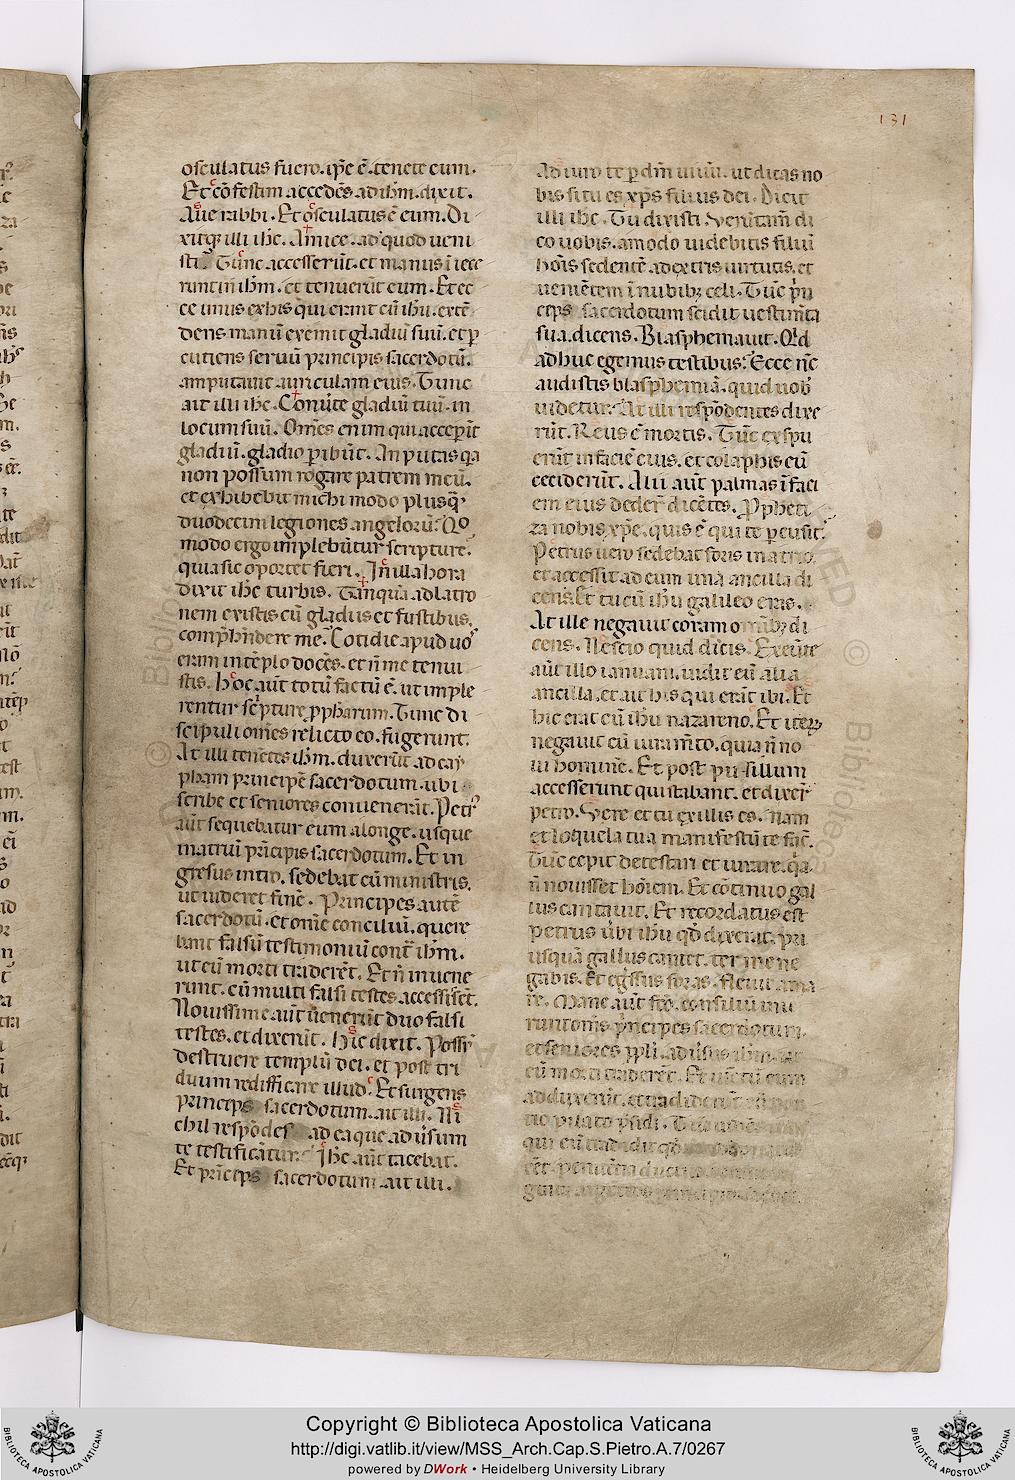 131
osculatus fuero. ip̄e ē. tenete eum.
Et cōfestim accedēs ad ih̄m. dixit.
Aue rabbi. Et osculatus ē eum. Di
xitq; illi ih̄c. Amice. ad quod ueni
sti? Tūnc accesserūt. et manus īiece
runt in ih̄m. et tenuerūt eum. Et ec
ce unus ex his qui erant cū ih̄u. extē
dens manū exemit gladiū suū. et ꝑ
cutiens seruū principis sacerdotū.
amputauit auriculam eius. Tunc
ait illi ih̄c. Conūte gladiū tuū. in
locum suū. Om̄es enim qui acceꝑīt
gladiū. gladio ꝑibūt. An putas qa
non possum rogare patrem meū.
et exhibebit michi modo plusq̄
duodecim legiones angelorū? Qo
modo ergo implebūtur scripture.
quia sic oportet fieri. In illa hora
dixit ih̄c turbis. Tanquā ad latro
nem existis cū gladiis et fustibus.
comp̄h̄ndere me. Cotidie apud uos
eram in tēplo docēs. et n̄ me tenui
stis. Hoc aūt totū factū ē. ut imple
rentur scͥpture ꝓpharum. Tunc di
scipuli om̄es relicto eo. fugerunt.
At illi tenētes ih̄m. duxerūt ad cay
pham principē sacerdotum. ubi
scribe et seniores conuenerāt. Petr᾿
aūt sequebatur eum a longe. usque
in atriū prīcipis sacerdotum. Et in
gresus intro. sedebat cū ministris.
ut uideret finē. Principes autē
sacerdotū. et om̄e conciliū. quere
bant falsū testimoniū cont̄ ih̄m.
ut eū morti traderēt. Et n̄ inuene
runt. cū multi falsi testes accessisēt.
Nouissime aūt uenerūt duo falsi
testes. et dixerūt. Hic dixit. Possū
destruere templū dei. et post tri
duum redifficare illud. Et surgens
princeps sacerdotum. ait illi. Ni
chil respōdes ad ea que adūsum
te testificātur? Ih̄c aūt tacebat.
Et prīceps sacerdotum. ait illi.
Adiuro te ꝑ dm̄ uiuū. ut dicas no
bis si tu es xp̄s filius dei. Dicit
illi ih̄c. Tu dixisti. Verūtam̄ di
co uobis. amodo uidebitis filiū
hoīs sedentē a dextris uirtutis. et
ueniētem ī nubib; celi. Tūc pͥn
ceps sacerdotum scidit uestim̄ta
sua. dicens. Blasphemauit. Qͥd
adhuc egemus testibus? Ecce nc̄
audistis blasphemiā. quid uob᾿
uidetur? At illi respōdentes dixe
rūt. Reus ē mortis. Tūc expu
erūt in faciē eius. et colaphis eū
ceciderūt. Alii aūt palmas ī faci
em eius dederт dicētes. Ꝓpheti
za nobis xp̄e. quis ē qui te ꝑcusit?
Petrus uero sedebat foris in atrio.
et accessit ad eum una ancilla di
cens. Et tu cū ih̄u galileo eras.
At ille negauit coram omīb; di
cens. Nescio quid dicis. Exeūte
aūt illo ianuam. uidit eū alia
ancilla. et ait his qui erāt ibi. Et
hic erat cū ih̄u nazareno. Et iteꝝ
negauit cū iuram̄to. quia n̄ no
ui hominē. Et post pusillum
accesserunt qui stabant. et dixer̄
petro. Vere et tu ex illis es. Nam
et loquela tua manifestū te fac̄.
Tūc cepit detestari et iurare. qͣa
n̄ nouisset hoīem. Et cōtinuo gal
lus cantauit. Et recordatus est
petrus ūbi ih̄u qd̄ dixerat. pri
usquā gallus cantet. ter me ne
gabis. Et egressus foras. fleuit ama
re. Mane aūt fcō. consiliū ini
runt om̄s pͥncipes sacerdotum.
et seniores ppl̄i. adūsus ih̄m. ut
eū morti traderēt. Et uīctū eum
adduxerūt. et tradiderūt
tio pilato pͥsidi. Tūc
qui eū tradidit qd̄
ēet. penitētia ductus.
Copyright © Biblioteca Apostolica Vaticana
http://digi.vatlib.it/view/MSS_Arch.Cap.S.Pietro.A.7/0267
powered by DWork • Heidelberg University Library
BIBLIOTECA APOSTOLICA VATICANA
BIBLIOTECA APOSTOLICA VATICANA